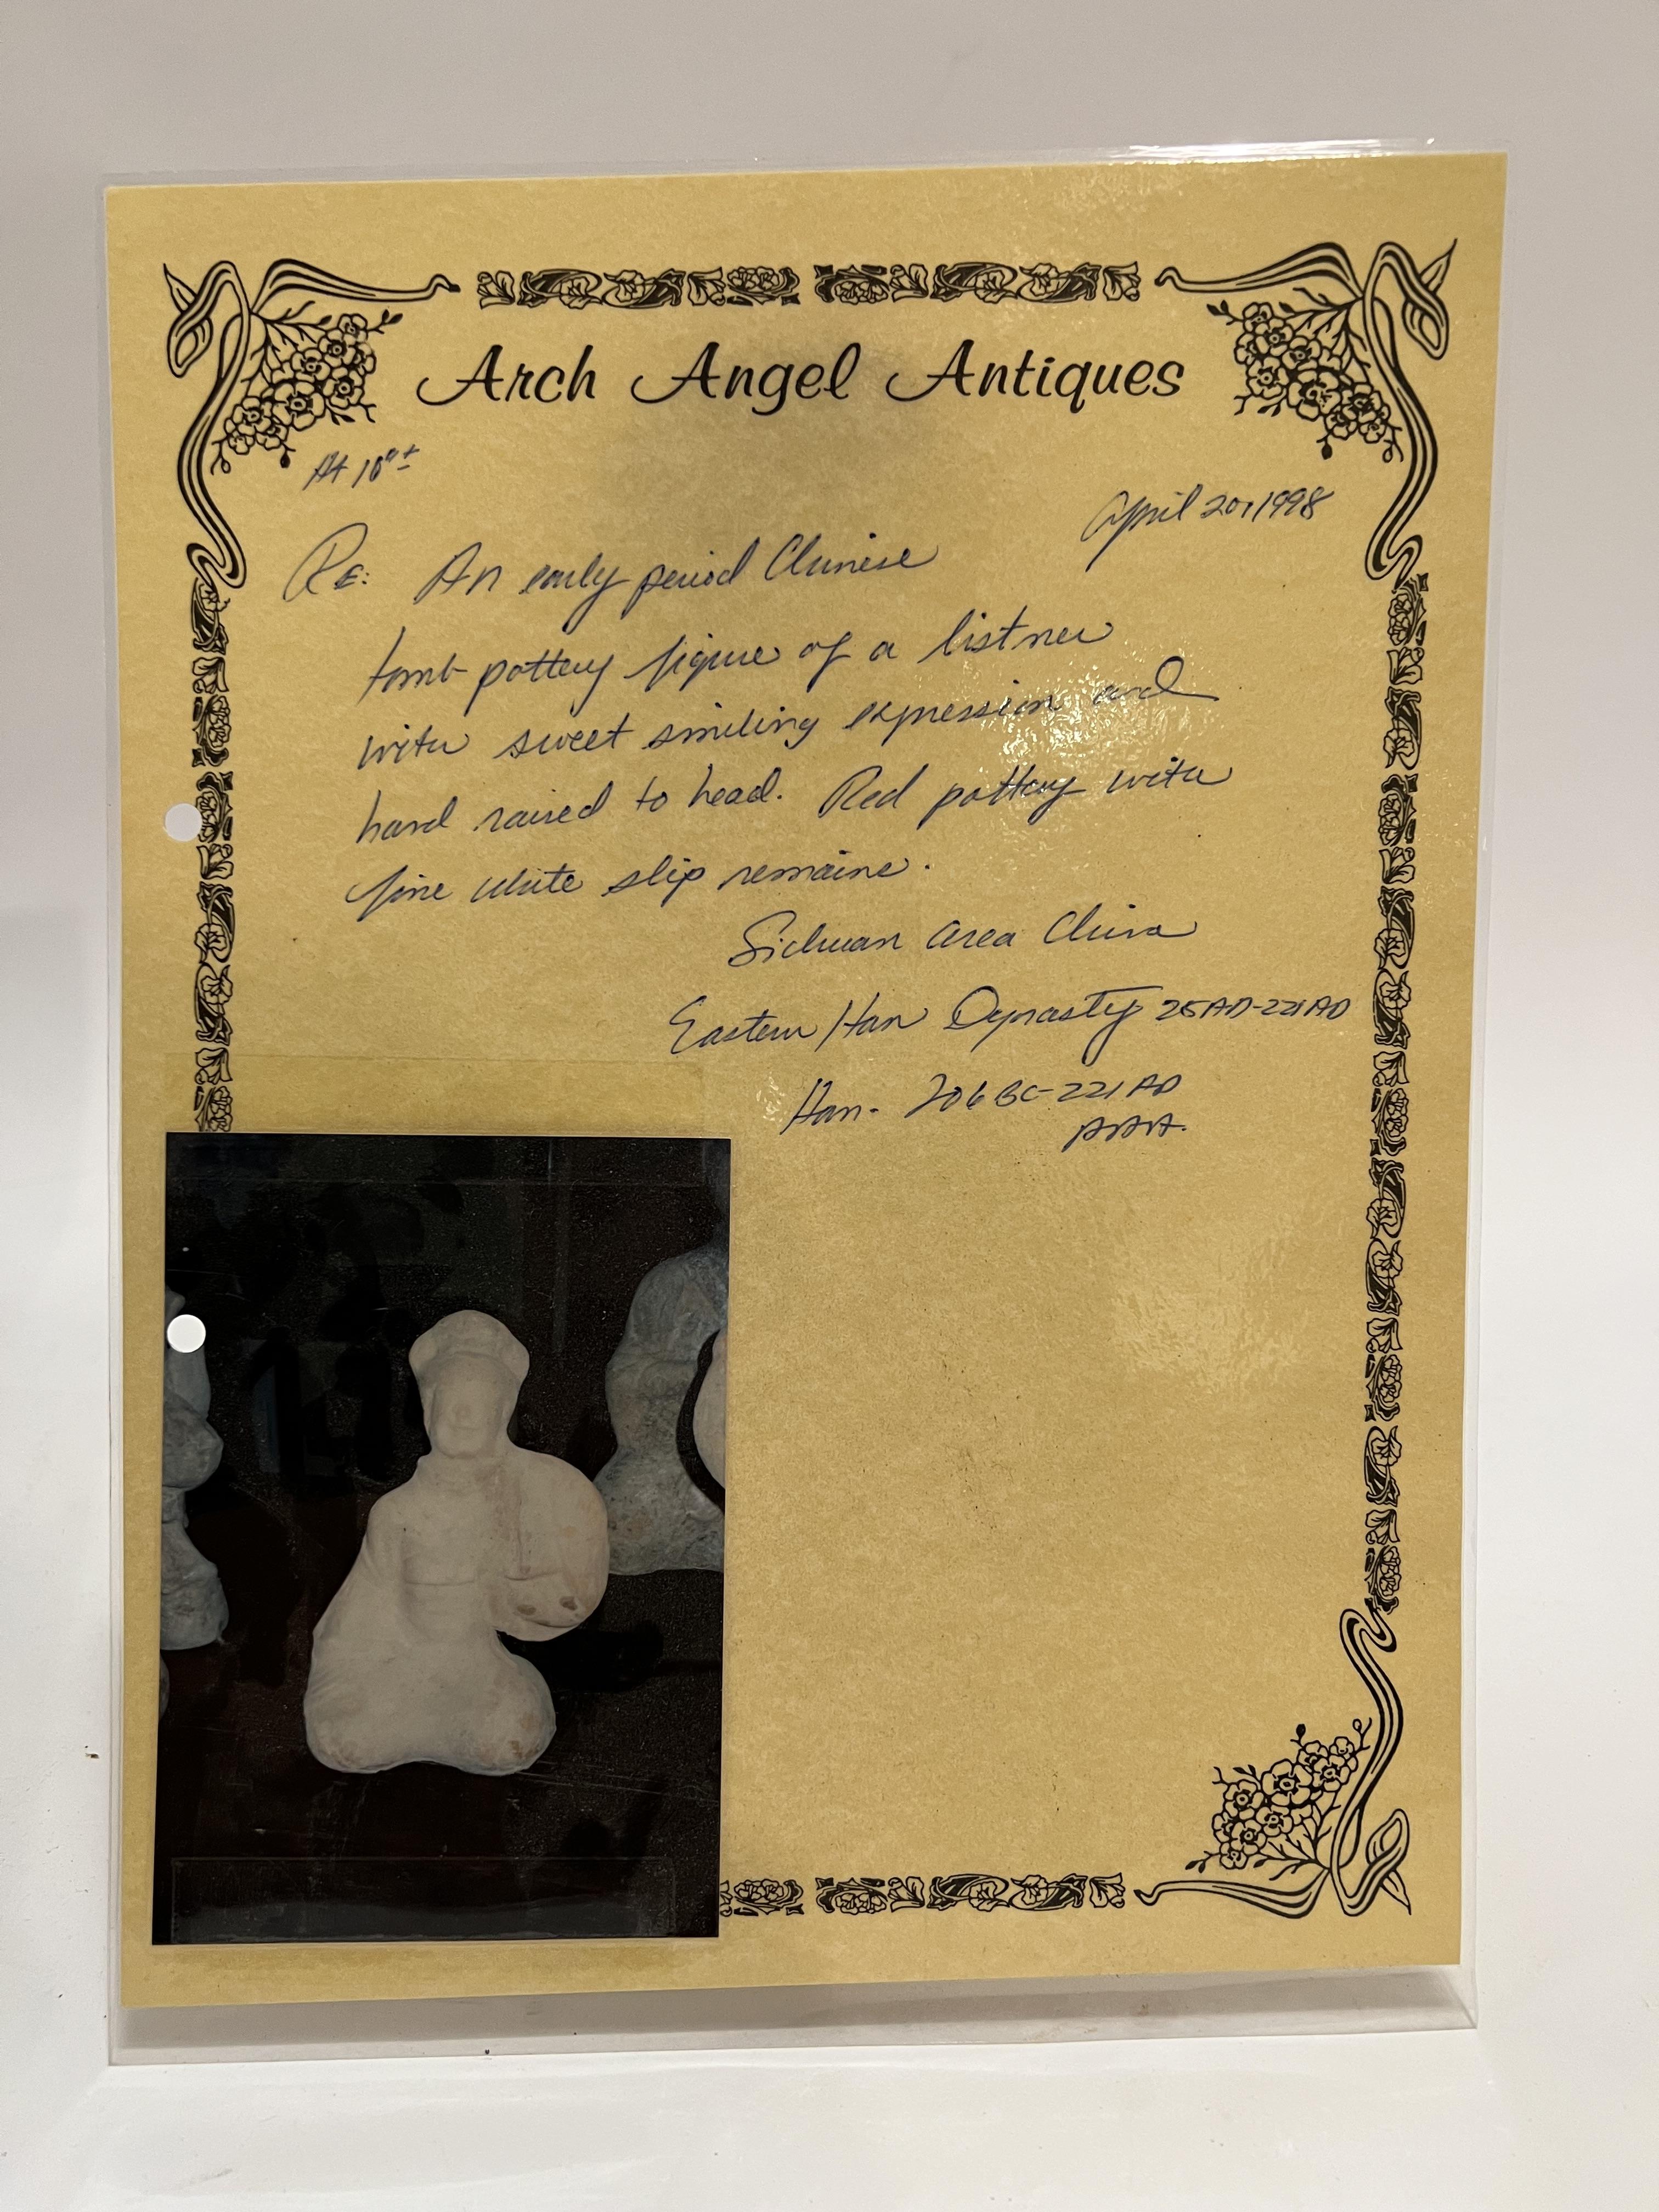 Arch Angel Antiques
Ht 10"±
April 20, 1998
RE: An early period Chinese
tomb pottery figure of a listner
with sweet smiling expression and
hand raised to head. Red pottery with
fine white slip remains.
Sichuan area China
Eastern Han Dynasty 25AD-221AD
Han- 206BC-221AD
AAA.